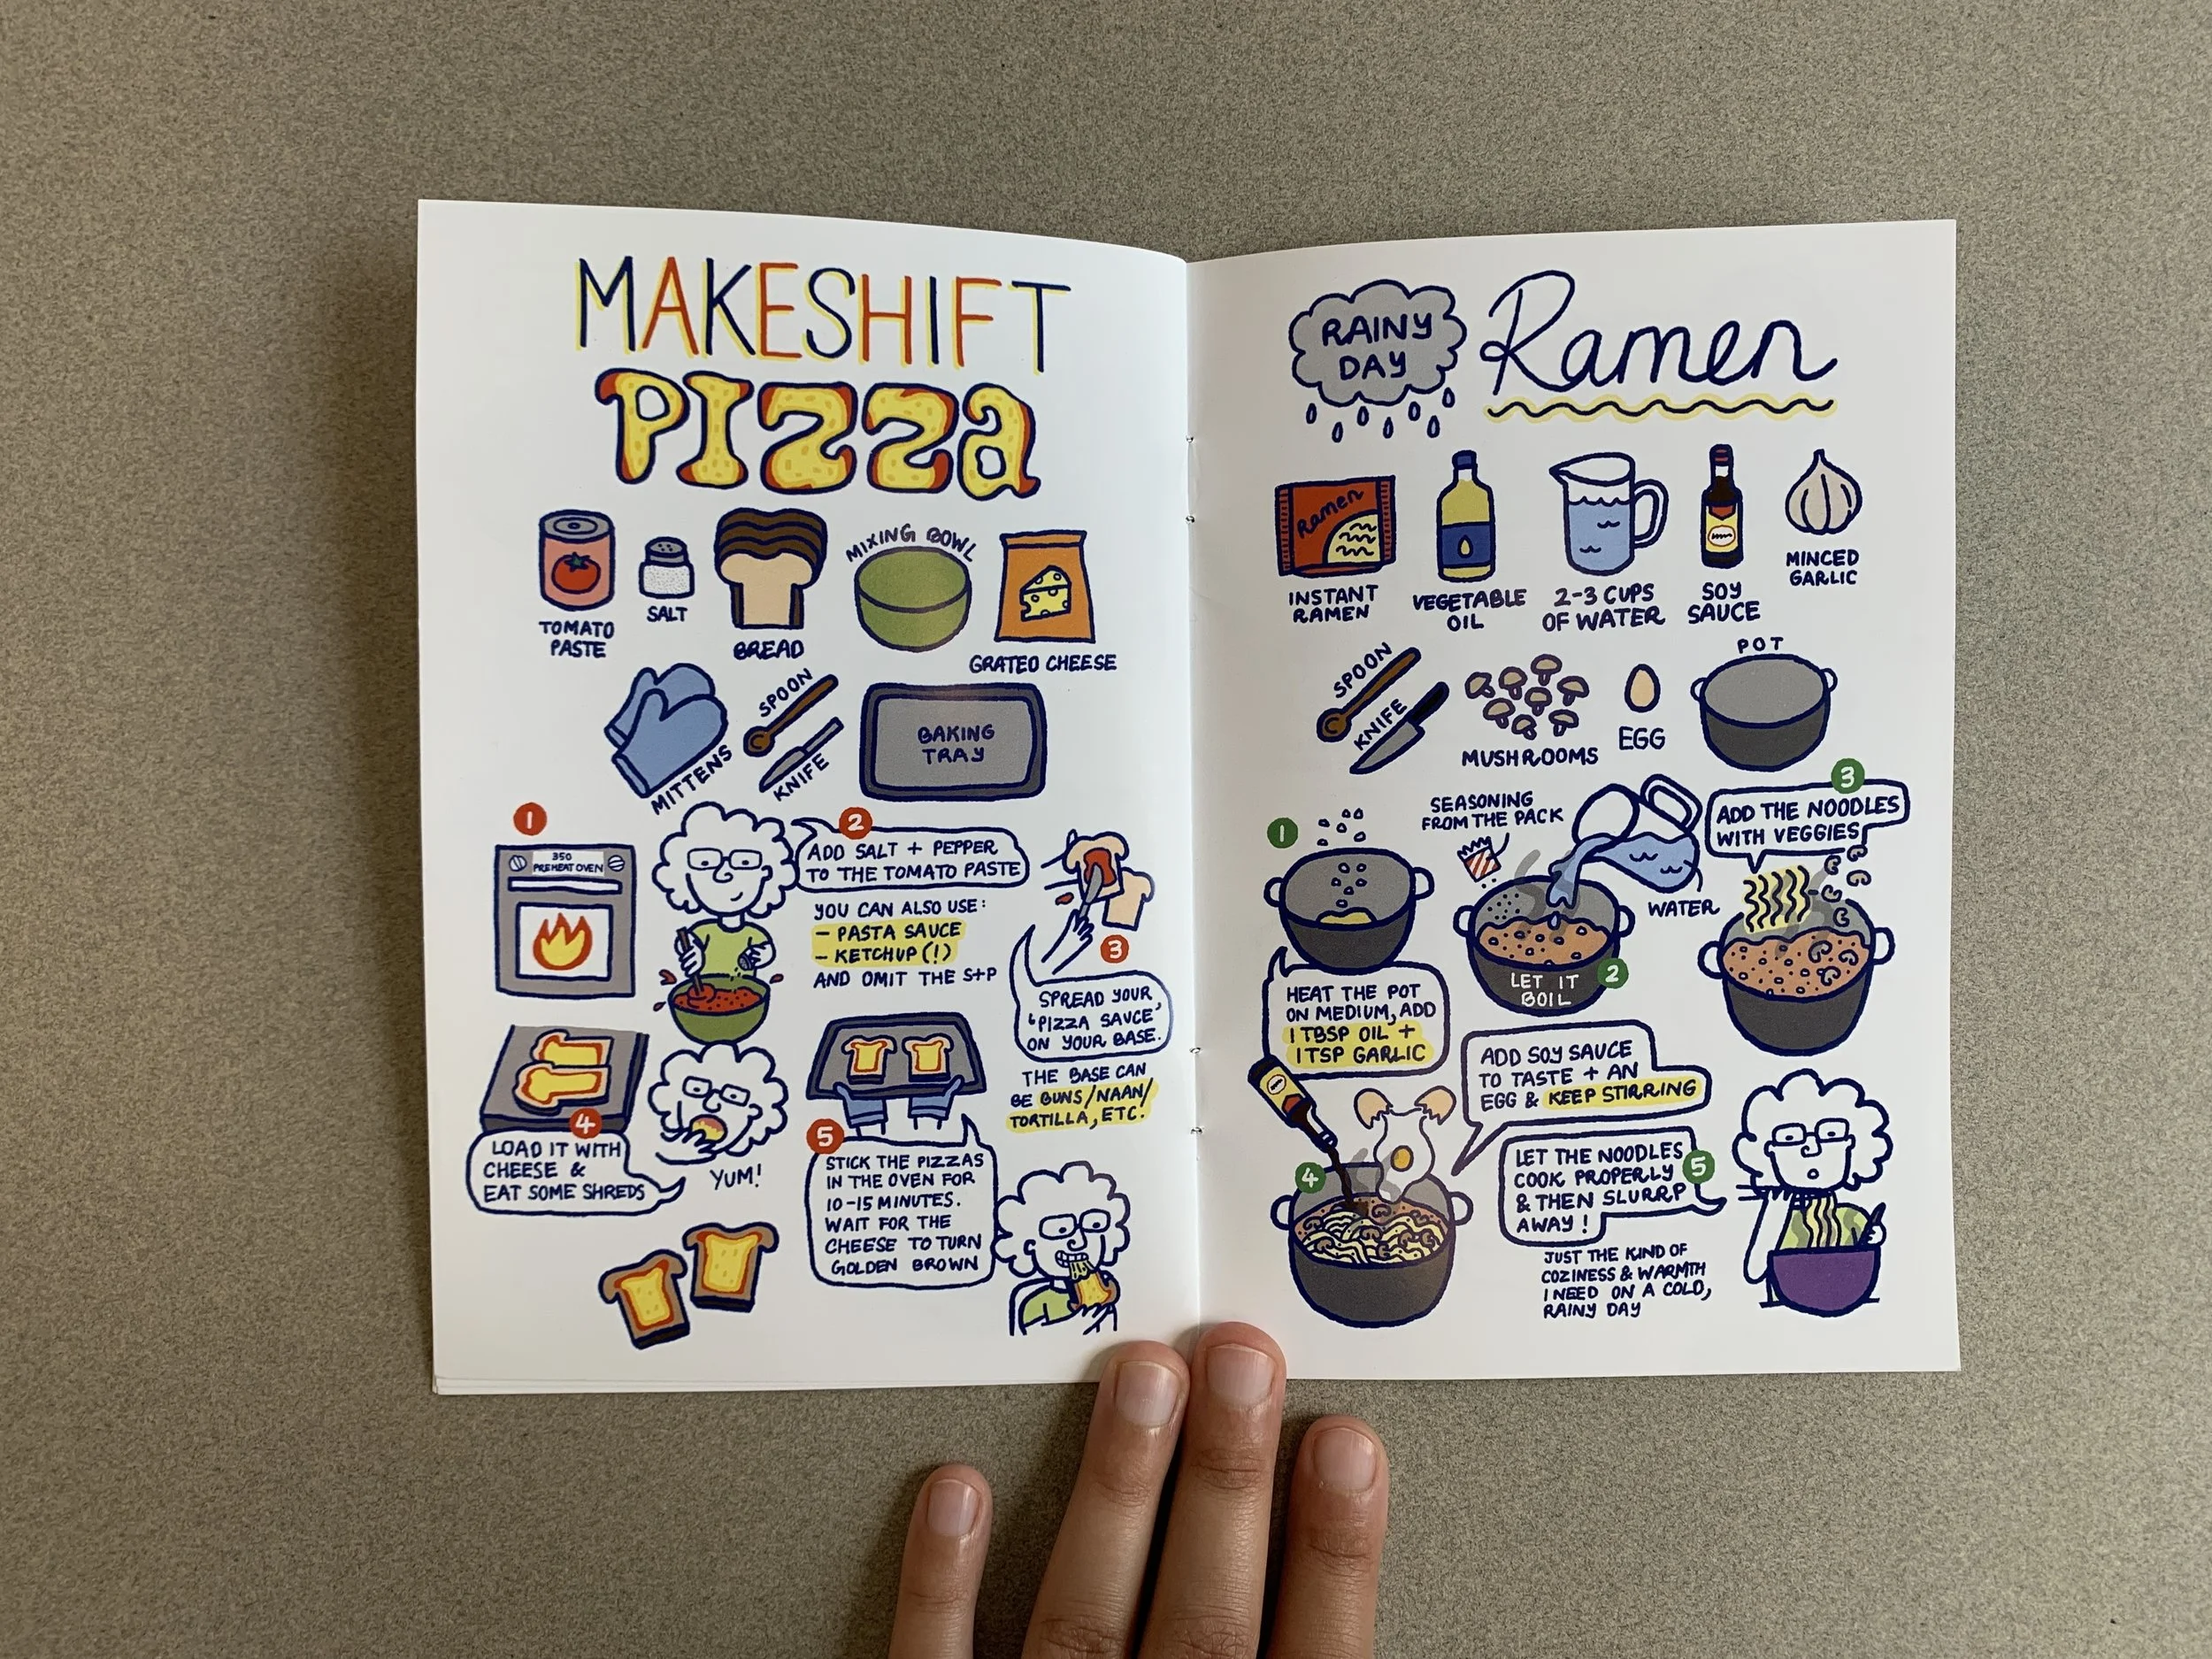 MAKESHIFT
PIZZA
TOMATO
PASTE
SALT
BREAD
MIXING BOWL
GRATED CHEESE
MITTENS
SPOON
KNIFE
BAKING
TRAY
1
350
PREHEAT OVEN
2
ADD SALT + PEPPER
TO THE TOMATO PASTE
YOU CAN ALSO USE:
- PASTA SAUCE
- KETCHUP (!)
AND OMIT THE S+P
3
SPREAD YOUR
'PIZZA SAUCE'
ON YOUR BASE.
THE BASE CAN
BE BUNS/NAAN/
TORTILLA, ETC.
4
LOAD IT WITH
CHEESE &
EAT SOME SHREDS
YUM!
5
STICK THE PIZZAS
IN THE OVEN FOR
10-15 MINUTES.
WAIT FOR THE
CHEESE TO TURN
GOLDEN BROWN
RAINY
DAY
Ramen
Ramen
INSTANT
RAMEN
VEGETABLE
OIL
2-3 CUPS
OF WATER
SOY
SAUCE
MINCED
GARLIC
SPOON
KNIFE
MUSHROOMS
EGG
POT
1
HEAT THE POT
ON MEDIUM, ADD
1 TBSP OIL +
1 TSP GARLIC
SEASONING
FROM THE PACK
WATER
LET IT
BOIL
2
3
ADD THE NOODLES
WITH VEGGIES
4
ADD SOY SAUCE
TO TASTE + AN
EGG & KEEP STIRRING
5
LET THE NOODLES
COOK PROPERLY
& THEN SLURRP
AWAY!
JUST THE KIND OF
COZINESS & WARMTH
I NEED ON A COLD,
RAINY DAY